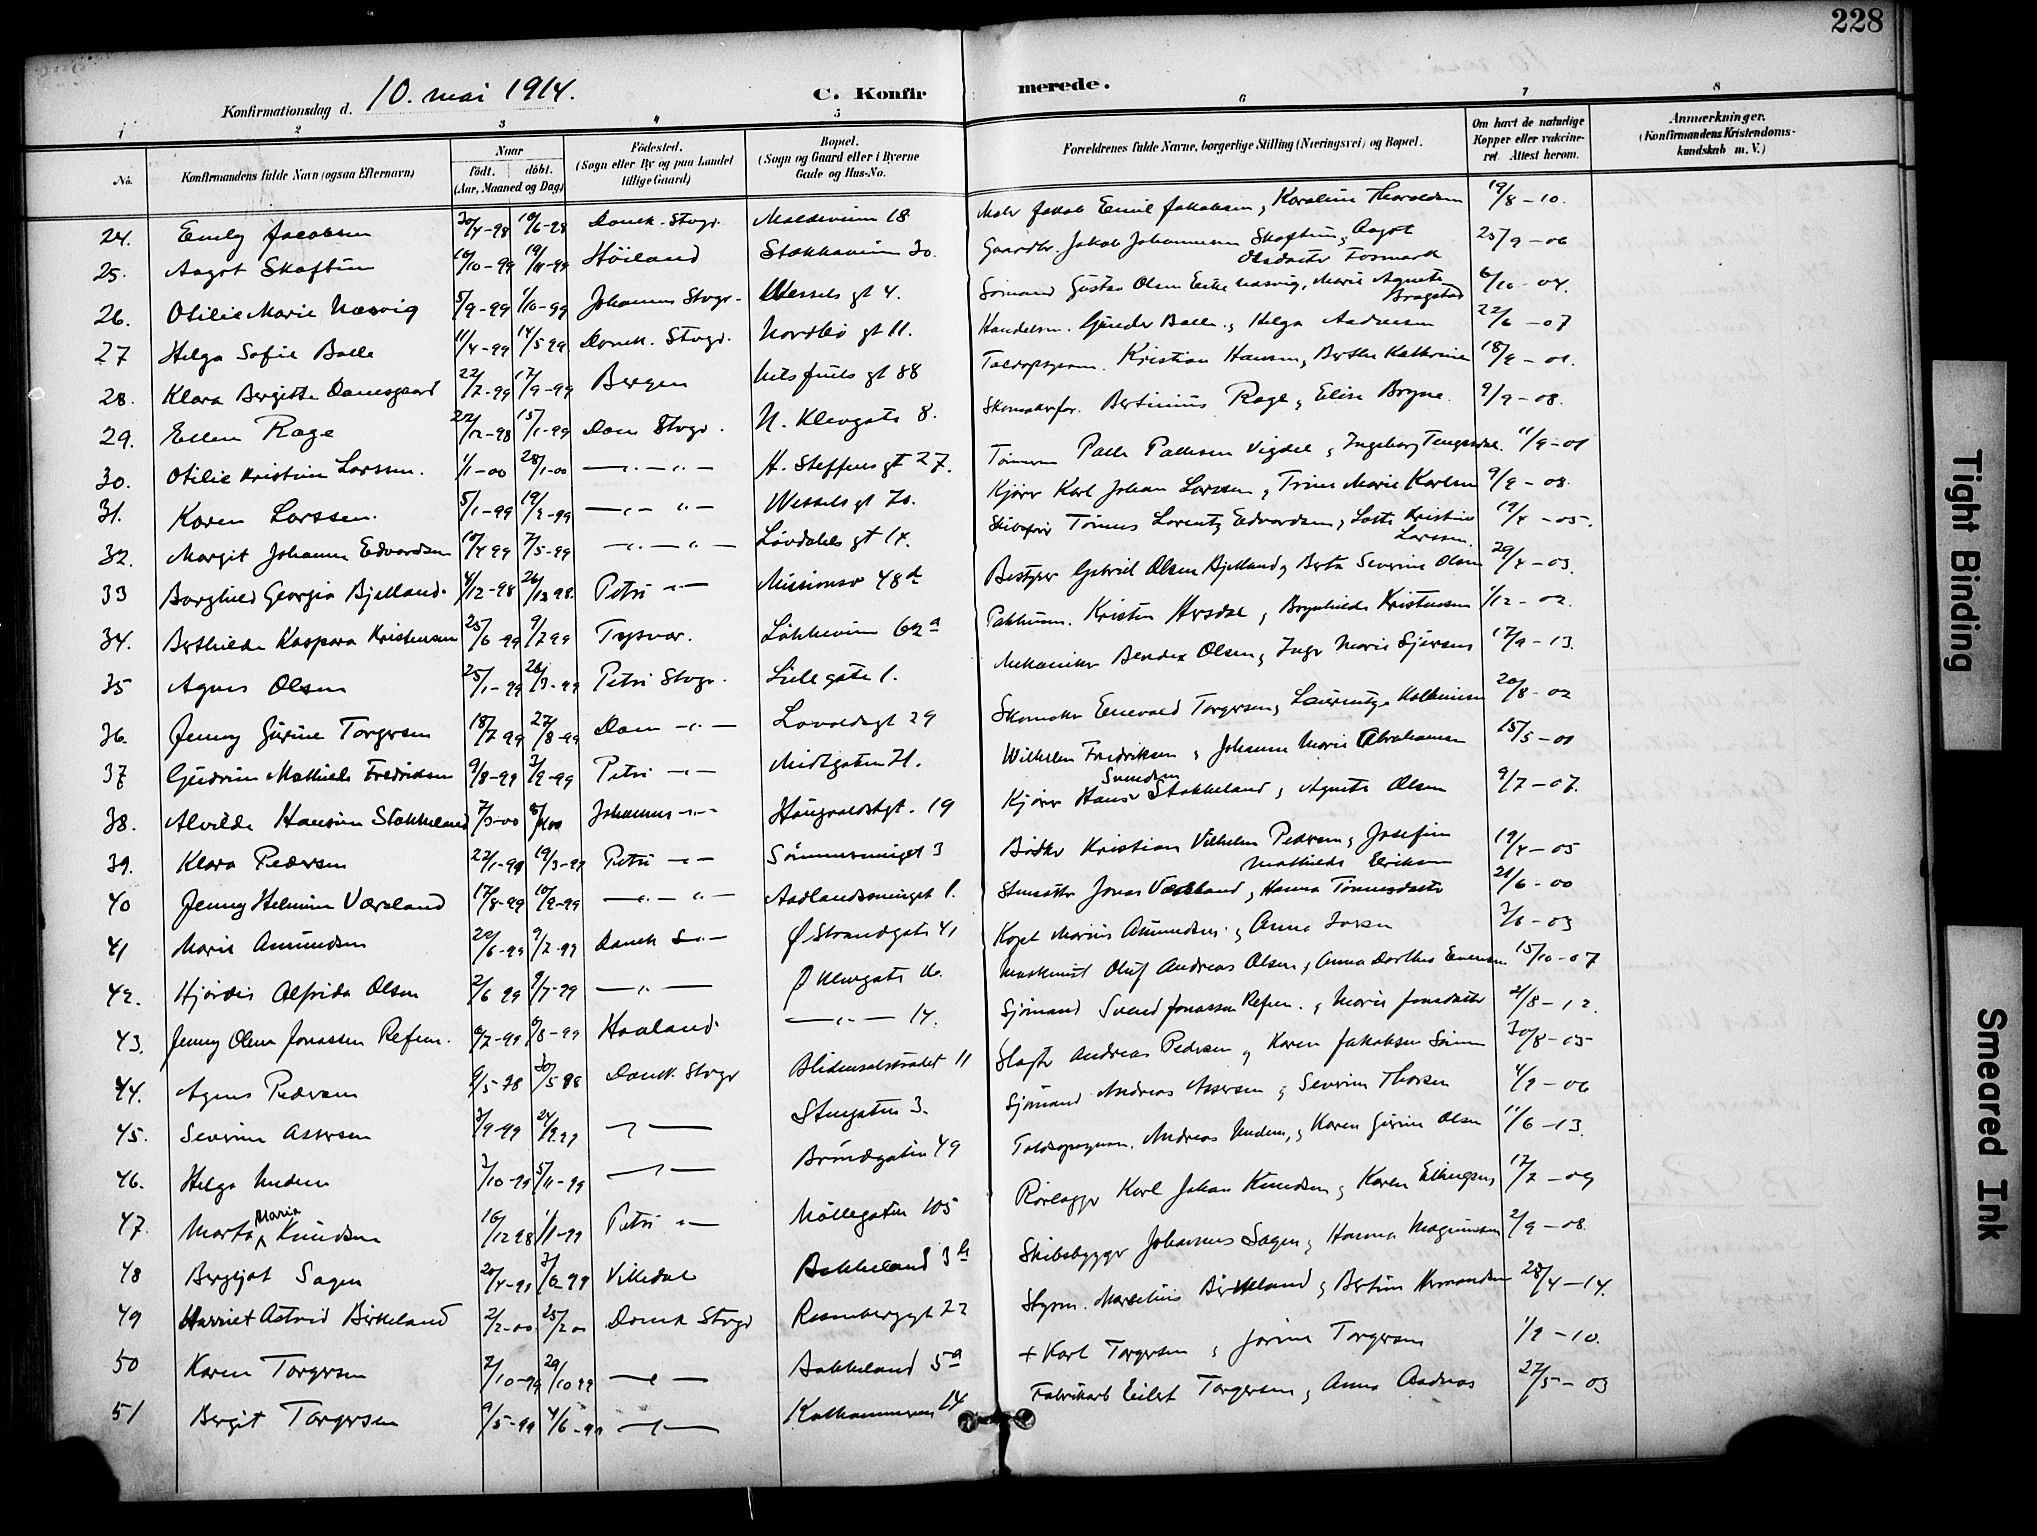 228
Konfirmationsdag d. 10. mai 1914.
C. Konfirmerede.
1 2 3 4 5 6 7 8
No.
Konfirmandens fulde Navn (ogsaa Efternavn)
Naar
født. døbt.
(Aar, Maaned og Dag)
Fødested.
(Sogn eller By og paa Landet
tillige Gaard)
Bopæl.
(Sogn og Gaard eller i Byerne
Gade og Hus-No.
Forældrenes fulde Navne, borgerlige Stilling (Næringsvei) og Bopæl.
Om havt de naturlige
Kopper eller vakcine-
ret. Attest herom.
Anmærkninger.
(Konfirmandens Kristendoms-
kundskab m. V.)
24. Emily Jacobsen 30/4-98 19/6-98 Domk. Stvgr. Maldeveien 18 Maler Jakob Emil Jakobsen, Karoline Thoraldsen 19/8-10.
25. Aagot Skaftun 16/10-99 Høiland Stokkaveien 30. Gaardbr. Jakob Johannesen Skaftun, Aagot 25/9-06
26. Otilie Marie Næsvig 5/9-99 1/10-99 Johannes Stvgr. Wessels gt 4. Sømand Gustav Olsen Næsvig, Marie Agnete 6/10-04.
27 Helga Sofie Balle 11/4-99 14/5 99 Domk. Stvgr. Nordbø gt 11. Handelsm. Gunder Balle, Helga Andersen 22/6-07
28. Klara Bergitte Damsgaard 22/7-99 17/9-99 Bergen Nils Juels gt 88 Toldopsynsm. Kristian Hansen, Berthe Kathrine 18/9-01.
29. Ellen Rage 22/12-98 15/1-99 Dom Stvgr. N. Klevgate 8. Skomakerfor. Bertinius Rage, Elise Bryne. 9/9-08.
30. Otilie Kristine Larssen. 1/1-00 28/1-00 H. Steffens gt 27. Tømmerm Palle Pallesen Vigdel, Ingeborg 11/9-01
31. Karen Larssen. 5/1-99 19/2-99 Wessels gt 70. Kjører Karl Johan Larssen, Trine Marie Karlsen 9/9-08.
32. Margit Johanne Edvardsen 16/4 99 7/5-99 Løvdahls gt 14. Tønnes Lorentz Edvardsen, Lotte Kristine Larssen. 19/4-05.
33 Borghild Georgia Bjelland. 4/12-98 26/12 98. Petri Missionsv 48 d Bestyrer Gabriel Olsen Bjelland, Berta Severine Olsen 29/4-03.
34. Berthilde Kaspara Kristensen 25/6-99 9/7 99 Tysvær. Løkkeveien 62 a Pakhusm. Kristen Aresdal, Brynhilde Kristensen 1/12-02.
35 Agnes Olsen 25/1-99 26/3-99 Petri Stvgr. Lillegate 1. Mekaniker Bendix Olsen, Inger Marie Sjursen 17/9-13.
36. Jenny Gurine Torgersen 18/7 99 27/8-99 Dom Løvoldsgt 29 Skomaker Enevald Torgersen, Laurentze 20/8-02
37 Gudrun Mathilde Fredriksen 9/8-99 3/9-99 Petri Midtgaten 71. Wilhelm Fredriksen, Johanne Marie Abrahamsen 15/5-01
38. Alvilde Hansine Stokkeland 7/3-00 Johannes Haugvaldstgt. 19 Kjører Hans Svendsen Stokkeland, Agnete Olsen 9/7-07.
39. Klara Pedersen 22/1-99 19/3-99 Petri Sømmesmuget 3 Bødker Kristian Vilhelm Pedersen, Josefine Mathilde Eriksen 19/4-05
40 Jenny Helmine Værland 17/8-99 10/9-99 Aadlandsmuget 1. Stensætter Jonas Værland, Hanna Tønnesdatter 21/6-00
41 Marie Amundsen 29/6-99 9/7-99 Domk Ø Strandgate 41 Kapt Marius Amundsen, Anna Iversen 7/6-03
42. Hjørdis Alfrida Olsen 2/6 99 9/7-99 Ø Klevgate 16. Maskinist Oluf Andreas Olsen, Anna Dorthea 15/10-07
43. Jenny Oline Jonassen Refsnes. 6/7-99 6/8-99 Haaland. 14. Sjømand Svend Jonassen Refsn., Marie Jonsdatter 21/8-12.
44. Agnes Pedersen 9/5-98 30/5 98 Domk. Stvgr Blidensolstrædet 11 Slagter Andreas Pedersen, Karen Jakobsen 30/8-05
45. Severine Assersen 3/9-99 24/9 99 Stengaten 3. Sjømand Andreas Assersen, Severine Thorsen 4/9-06
46. Helga Undem 3/10-99 5/11-99 Brøndgaten 49 Toldopsynsm. Andreas Undem, Karen Gurine Olsen 11/6-13.
47. Marta Maria Knudsen 16/12 98 1/1-99 Petri Møllegaten 105 Rørlægger Karl Johan Knudsen, Karen Ellingsen 17/7-09
48 Bergljot Sagen 20/4-99 Vikedal Bakkeland 3 b Skibsbygger Johannes Sagen, Hanna Magnussen 2/9-08.
49 Harriet Astrid Birkeland 2/2-00 25/2 00 Domk Stvgr Rosenberggt 22 Styrm. Marselius Birkeland, Bertine 28/4-14.
50 Karen Torgersen 7/10-99 29/10 99 Bakkeland 5 a + Karl Torgersen, Jorine Torgersen 1/9-10.
51 Bergit Torgersen 9/5-99 4/6-99 Kalhammeren 14 Fabrikarb Eilert Torgersen, Anna Aadnas 27/5-03
Tight Binding
Smeared Ink